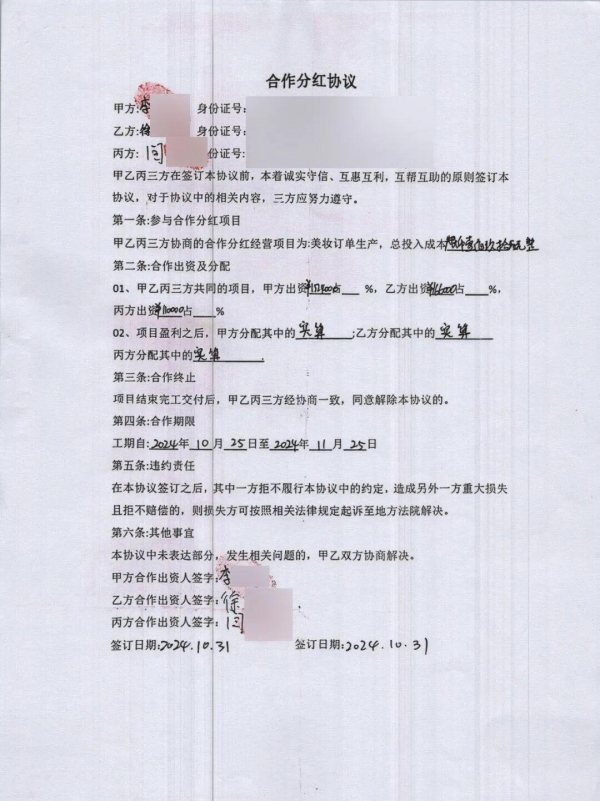 合作分红协议
甲方:李 身份证号:
乙方:徐 身份证号:
丙方: 闫 份证号:
甲乙丙三方在签订本协议前，本着诚实守信、互惠互利，互帮互助的原则签订本
协议，对于协议中的相关内容，三方应努力遵守。
第一条:参与合作分红项目
甲乙丙三方协商的合作分红经营项目为:美妆订单生产，总投入成本
第二条:合作出资及分配
01、甲乙丙三方共同的项目，甲方出资 占___%，乙方出资 占___%，
丙方出资 占___%
02、项目盈利之后，甲方分配其中的 实算 ;乙方分配其中的 实算
丙方分配其中的 实算 .
第三条:合作终止
项目结束完工交付后，甲乙丙三方经协商一致，同意解除本协议的。
第四条:合作期限
工期自:2024年10月25日至2024年11月25日
第五条:违约责任
在本协议签订之后，其中一方拒不履行本协议中的约定，造成另外一方重大损失
且拒不赔偿的，则损失方可按照相关法律规定起诉至地方法院解决。
第六条:其他事宜
本协议中未表达部分，发生相关问题的，甲乙双方协商解决。
甲方合作出资人签字:李
乙方合作出资人签字:徐
丙方合作出资人签字:闫
签订日期:2024.10.31 签订日期:2024.10.31